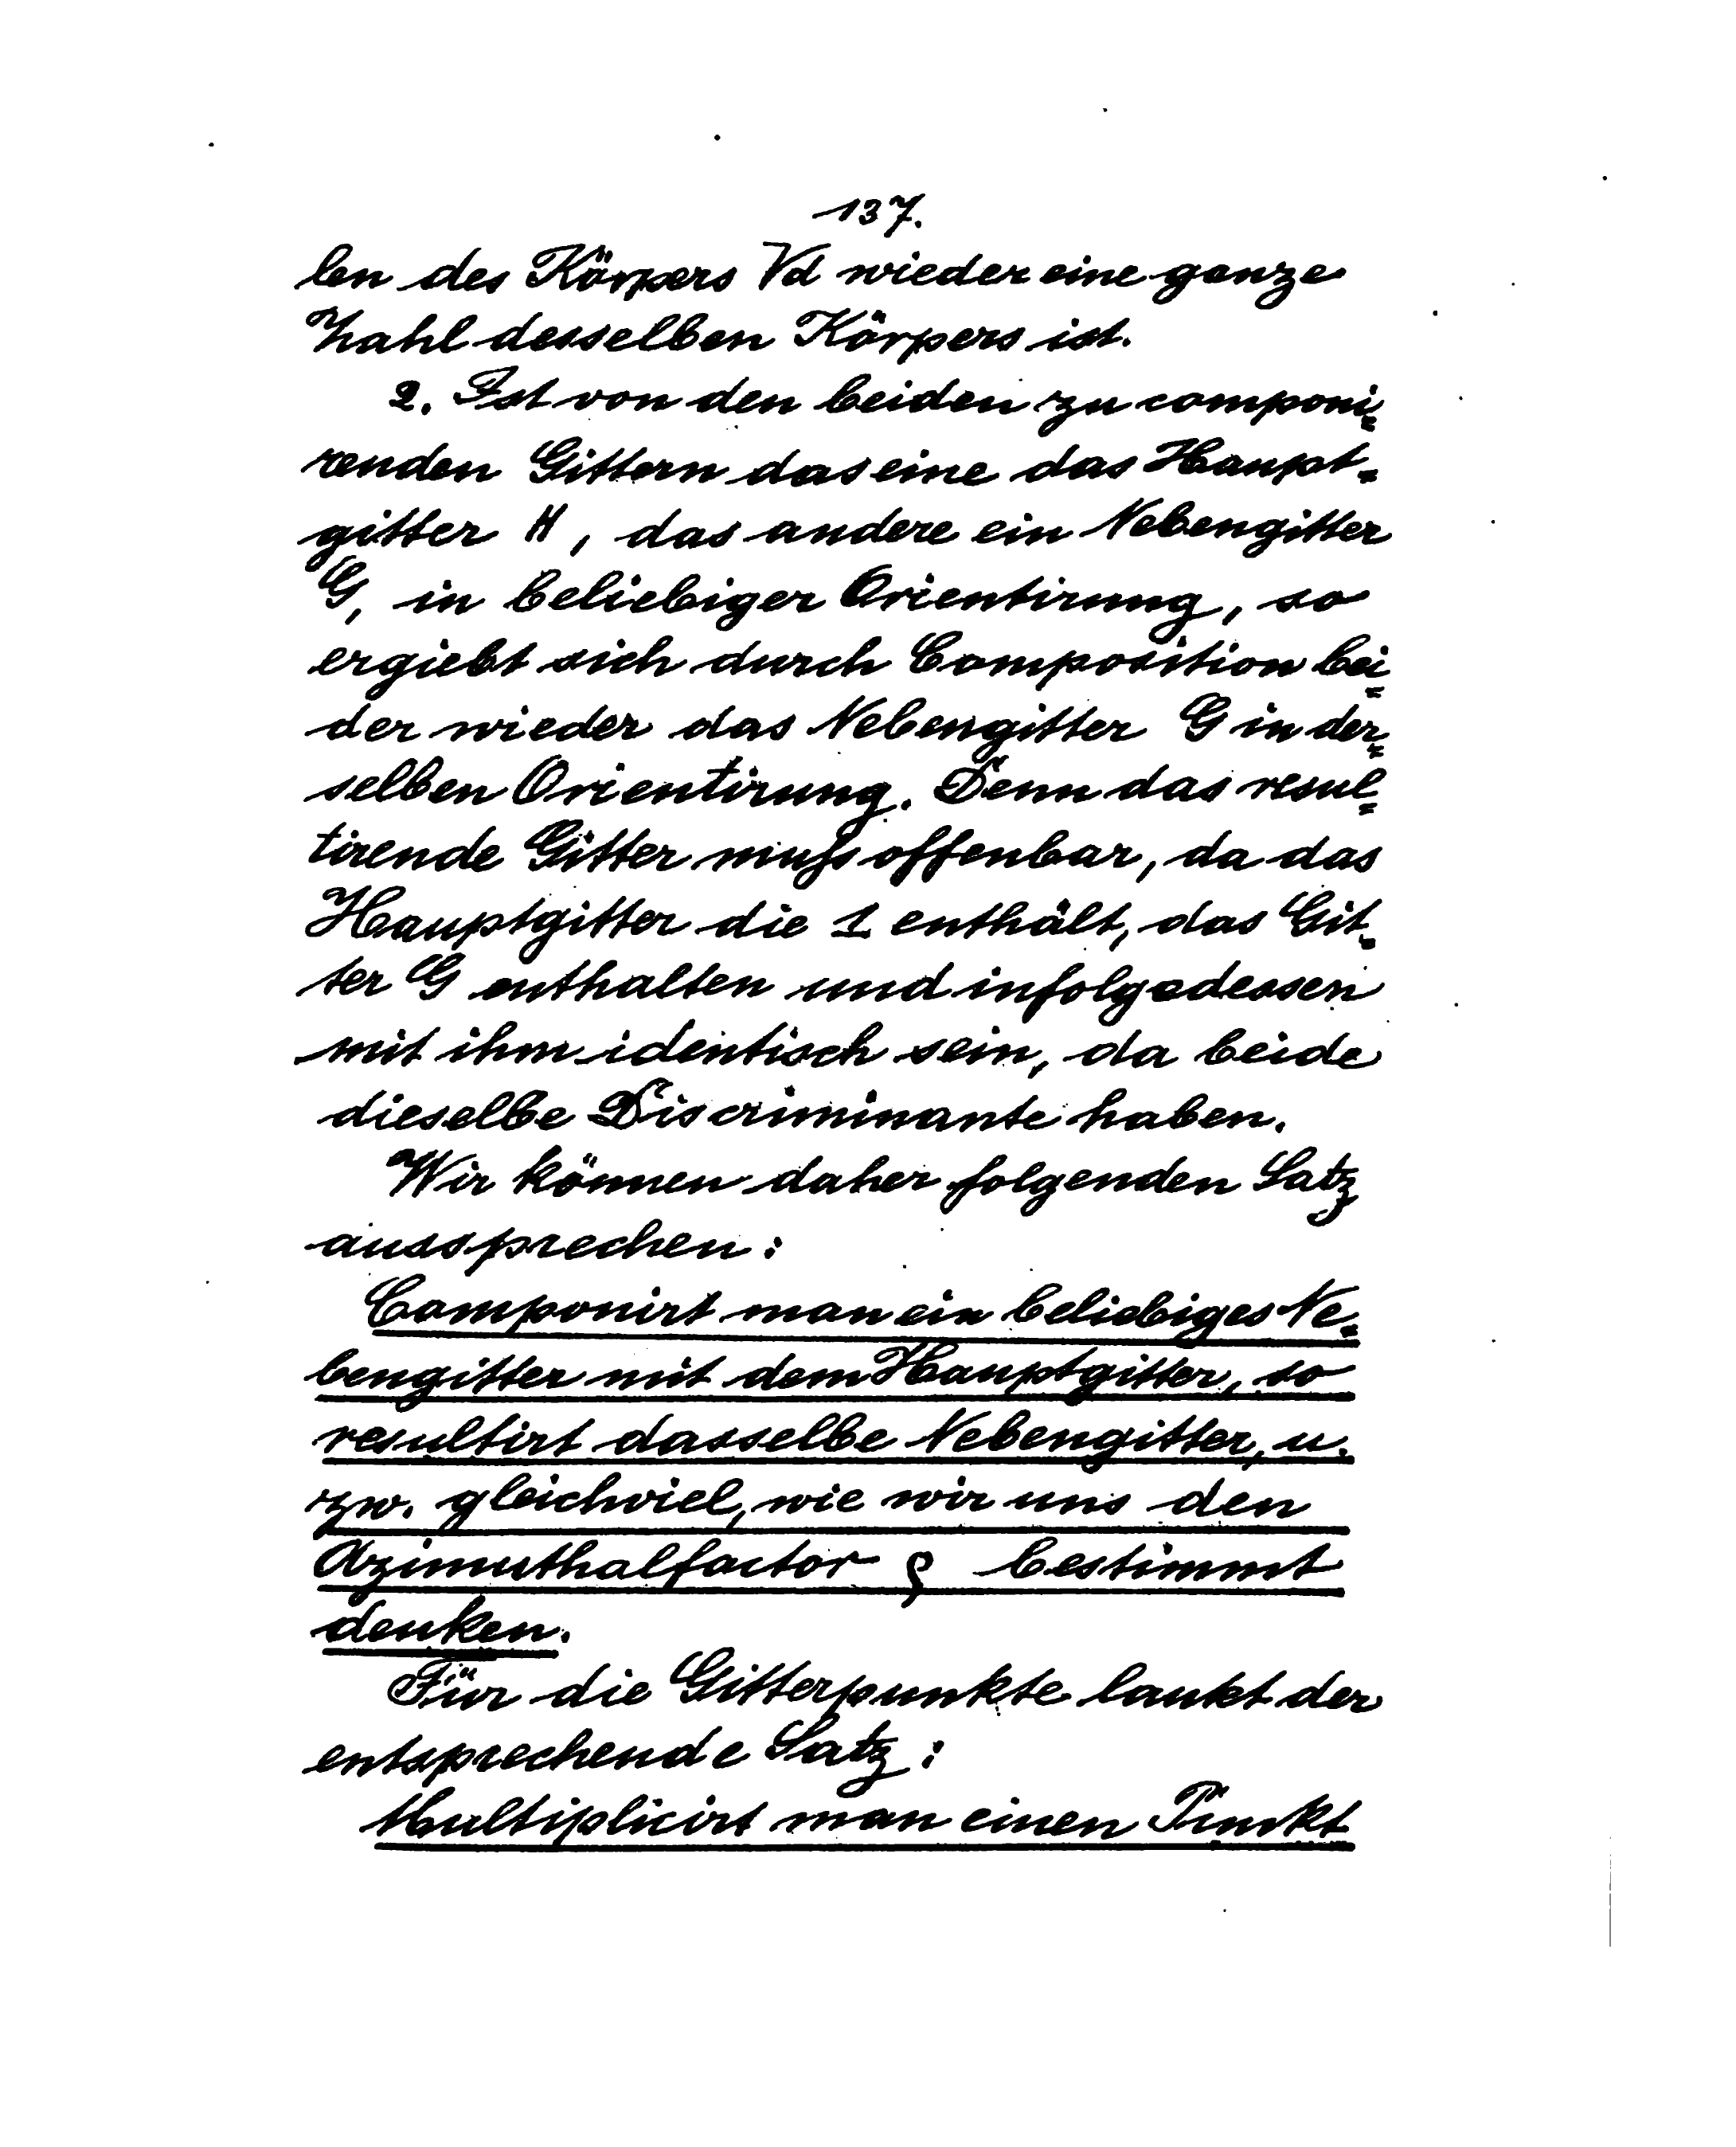 137.
len des Körpers √d wieder eine ganze
Zahl desselben Körpers ist.
2. Ist von den beiden zu componi=
renden Gittern das eine das Haupt=
gitter H, das andere ein Nebengitter
G, in beliebiger Orientirung, so
ergiebt sich durch Composition bei=
der wieder das Nebengitter G in der=
selben Orientirung. Denn das resul=
tirende Gitter muſs offenbar, da das
Hauptgitter die 1 enthält, das Git=
ter G enthalten und infolgedessen
mit ihm identisch sein, da beide
dieselbe Discriminante haben.
Wir können daher folgenden Satz
aussprechen:
Componirt man ein beliebiges Ne=
bengitter mit dem Hauptgitter, so
resultirt dasselbe Nebengitter, u.
zw. gleichviel, wie wir uns den
Azimuthalfactor ϱ bestimmt
denken.
Für die Gitterpunkte lautet der
entsprechende Satz:
Multiplicirt man einen Punkt